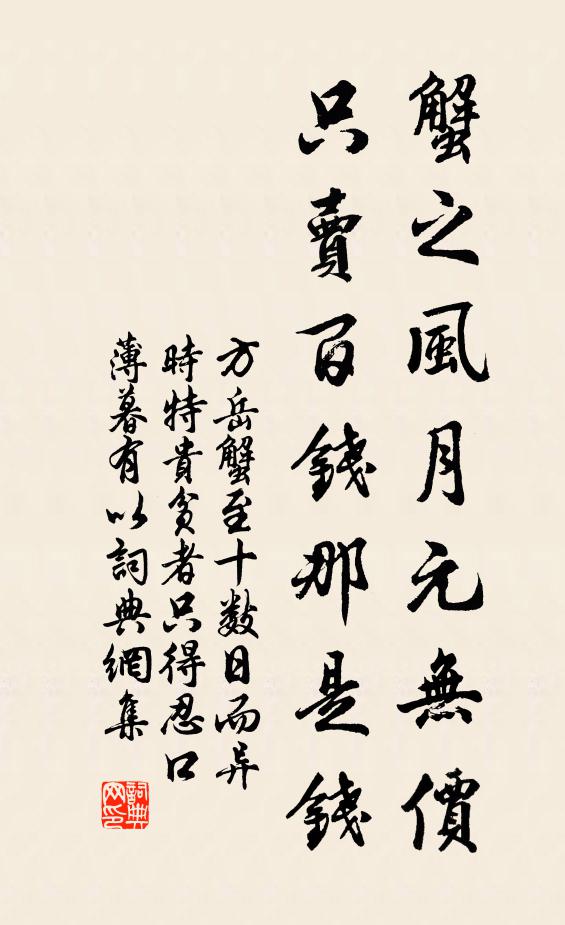 蟹之風月元無價
只賣百錢那是錢
方岳蟹至十數日而异
時特貴貧者只得忍口
薄暮有以詞典網集
詞典
网印